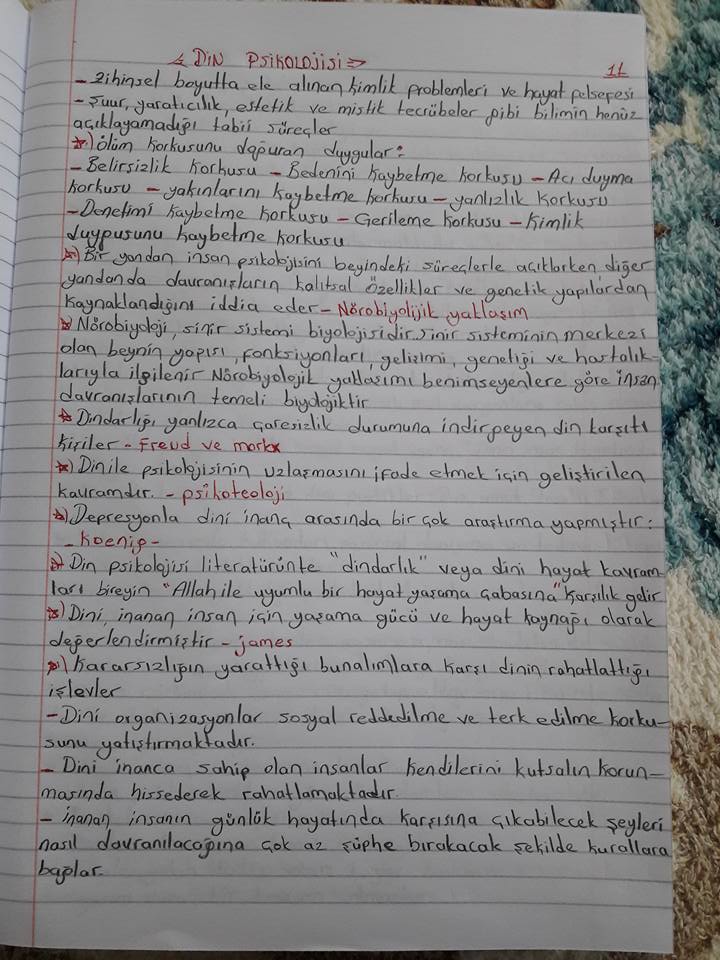 DİN PSİKOLOJİSİ
11
- Zihinsel boyutta ele alınan kimlik problemleri ve hayat felsefesi
- Şuur, yaratıcılık, estetik ve mistik tecrübeler gibi bilimin henüz
açıklayamadığı tabii süreçler
*) Ölüm korkusunu doğuran duygular:
- Belirsizlik korkusu - Bedenini kaybetme korkusu - Acı duyma
korkusu - yakınlarını kaybetme korkusu - yanlızlık korkusu
- Denetimi kaybetme korkusu - Gerileme korkusu - Kimlik
duygusunu kaybetme korkusu
*) Bir yandan insan psikolojisini beyindeki süreçlerle açıklarken, diğer
yandanda davranışların kalıtsal özellikler ve genetik yapılardan
kaynaklandığını iddia eder - Nörobiyolijik yaklaşım
*) Nörobiyoloji, sinir sistemi biyolojisidir. sinir sisteminin merkezi
olan beynin yapısı, fonksiyonları, gelişimi, genetiği ve hastalık-
larıyla ilgilenir Nörobiyolojik yaklaşımı benimseyenlere göre insan
davranışlarının temeli biyolojiktir
* Dindarlığı yanlızca çaresizlik durumuna indirgeyen din karşıtı
kişiler - Freud ve marks
*) Din ile psikolojisinin uzlaşmasını ifade etmek için geliştirilen
kavramdır. - psikoteoloji
*) Depresyonla dini inanç arasında bir çok araştırma yapmıştır:
- Koenig -
*) Din psikolojisi literatürünte "dindarlık" veya dini hayat kavram-
ları bireyin "Allah ile uyumlu bir hayat yaşama çabasına" karşılık gelir
*) Dini, inanan insan için yaşama gücü ve hayat kaynağı olarak
değerlendirmiştir - james
*) Kararsızlığın yarattığı bunalımlara karşı dinin rahatlattığı
işlevler
- Dini organizasyonlar sosyal reddedilme ve terk edilme korku-
sunu yatıştırmaktadır.
- Dini inanca sahip olan insanlar kendilerini kutsalın korun-
masında hissederek rahatlamaktadır.
- inanan insanın günlük hayatında karşısına çıkabilecek şeyleri
nasıl davranılacağına çok az şüphe bırakacak şekilde kurallara
bağlar.